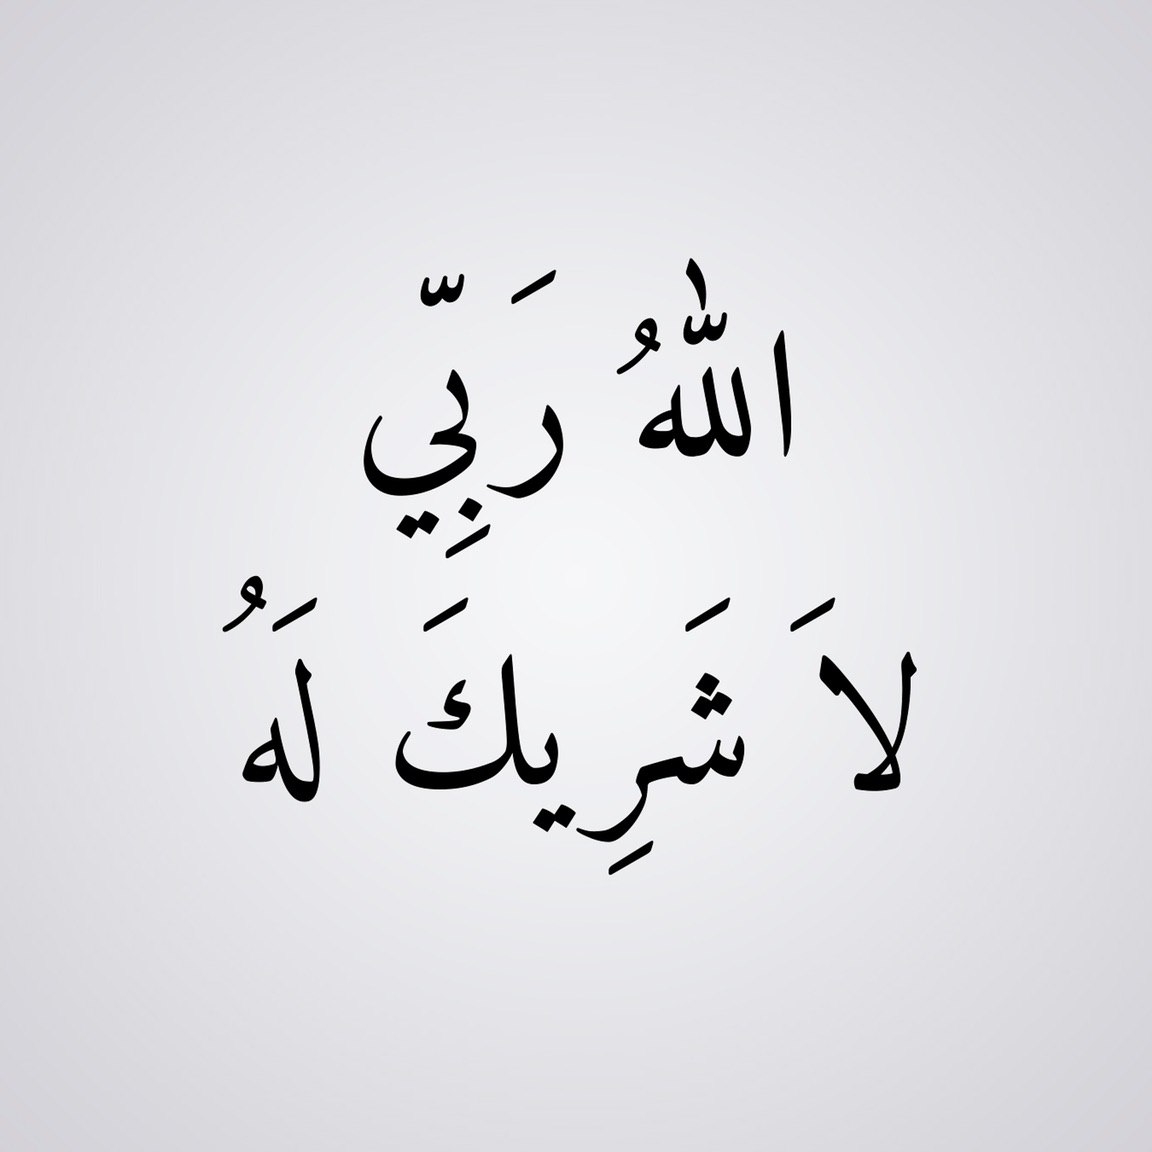 اللّٰهُ رَبِّي
لاَ شَرِيكَ لَهُ